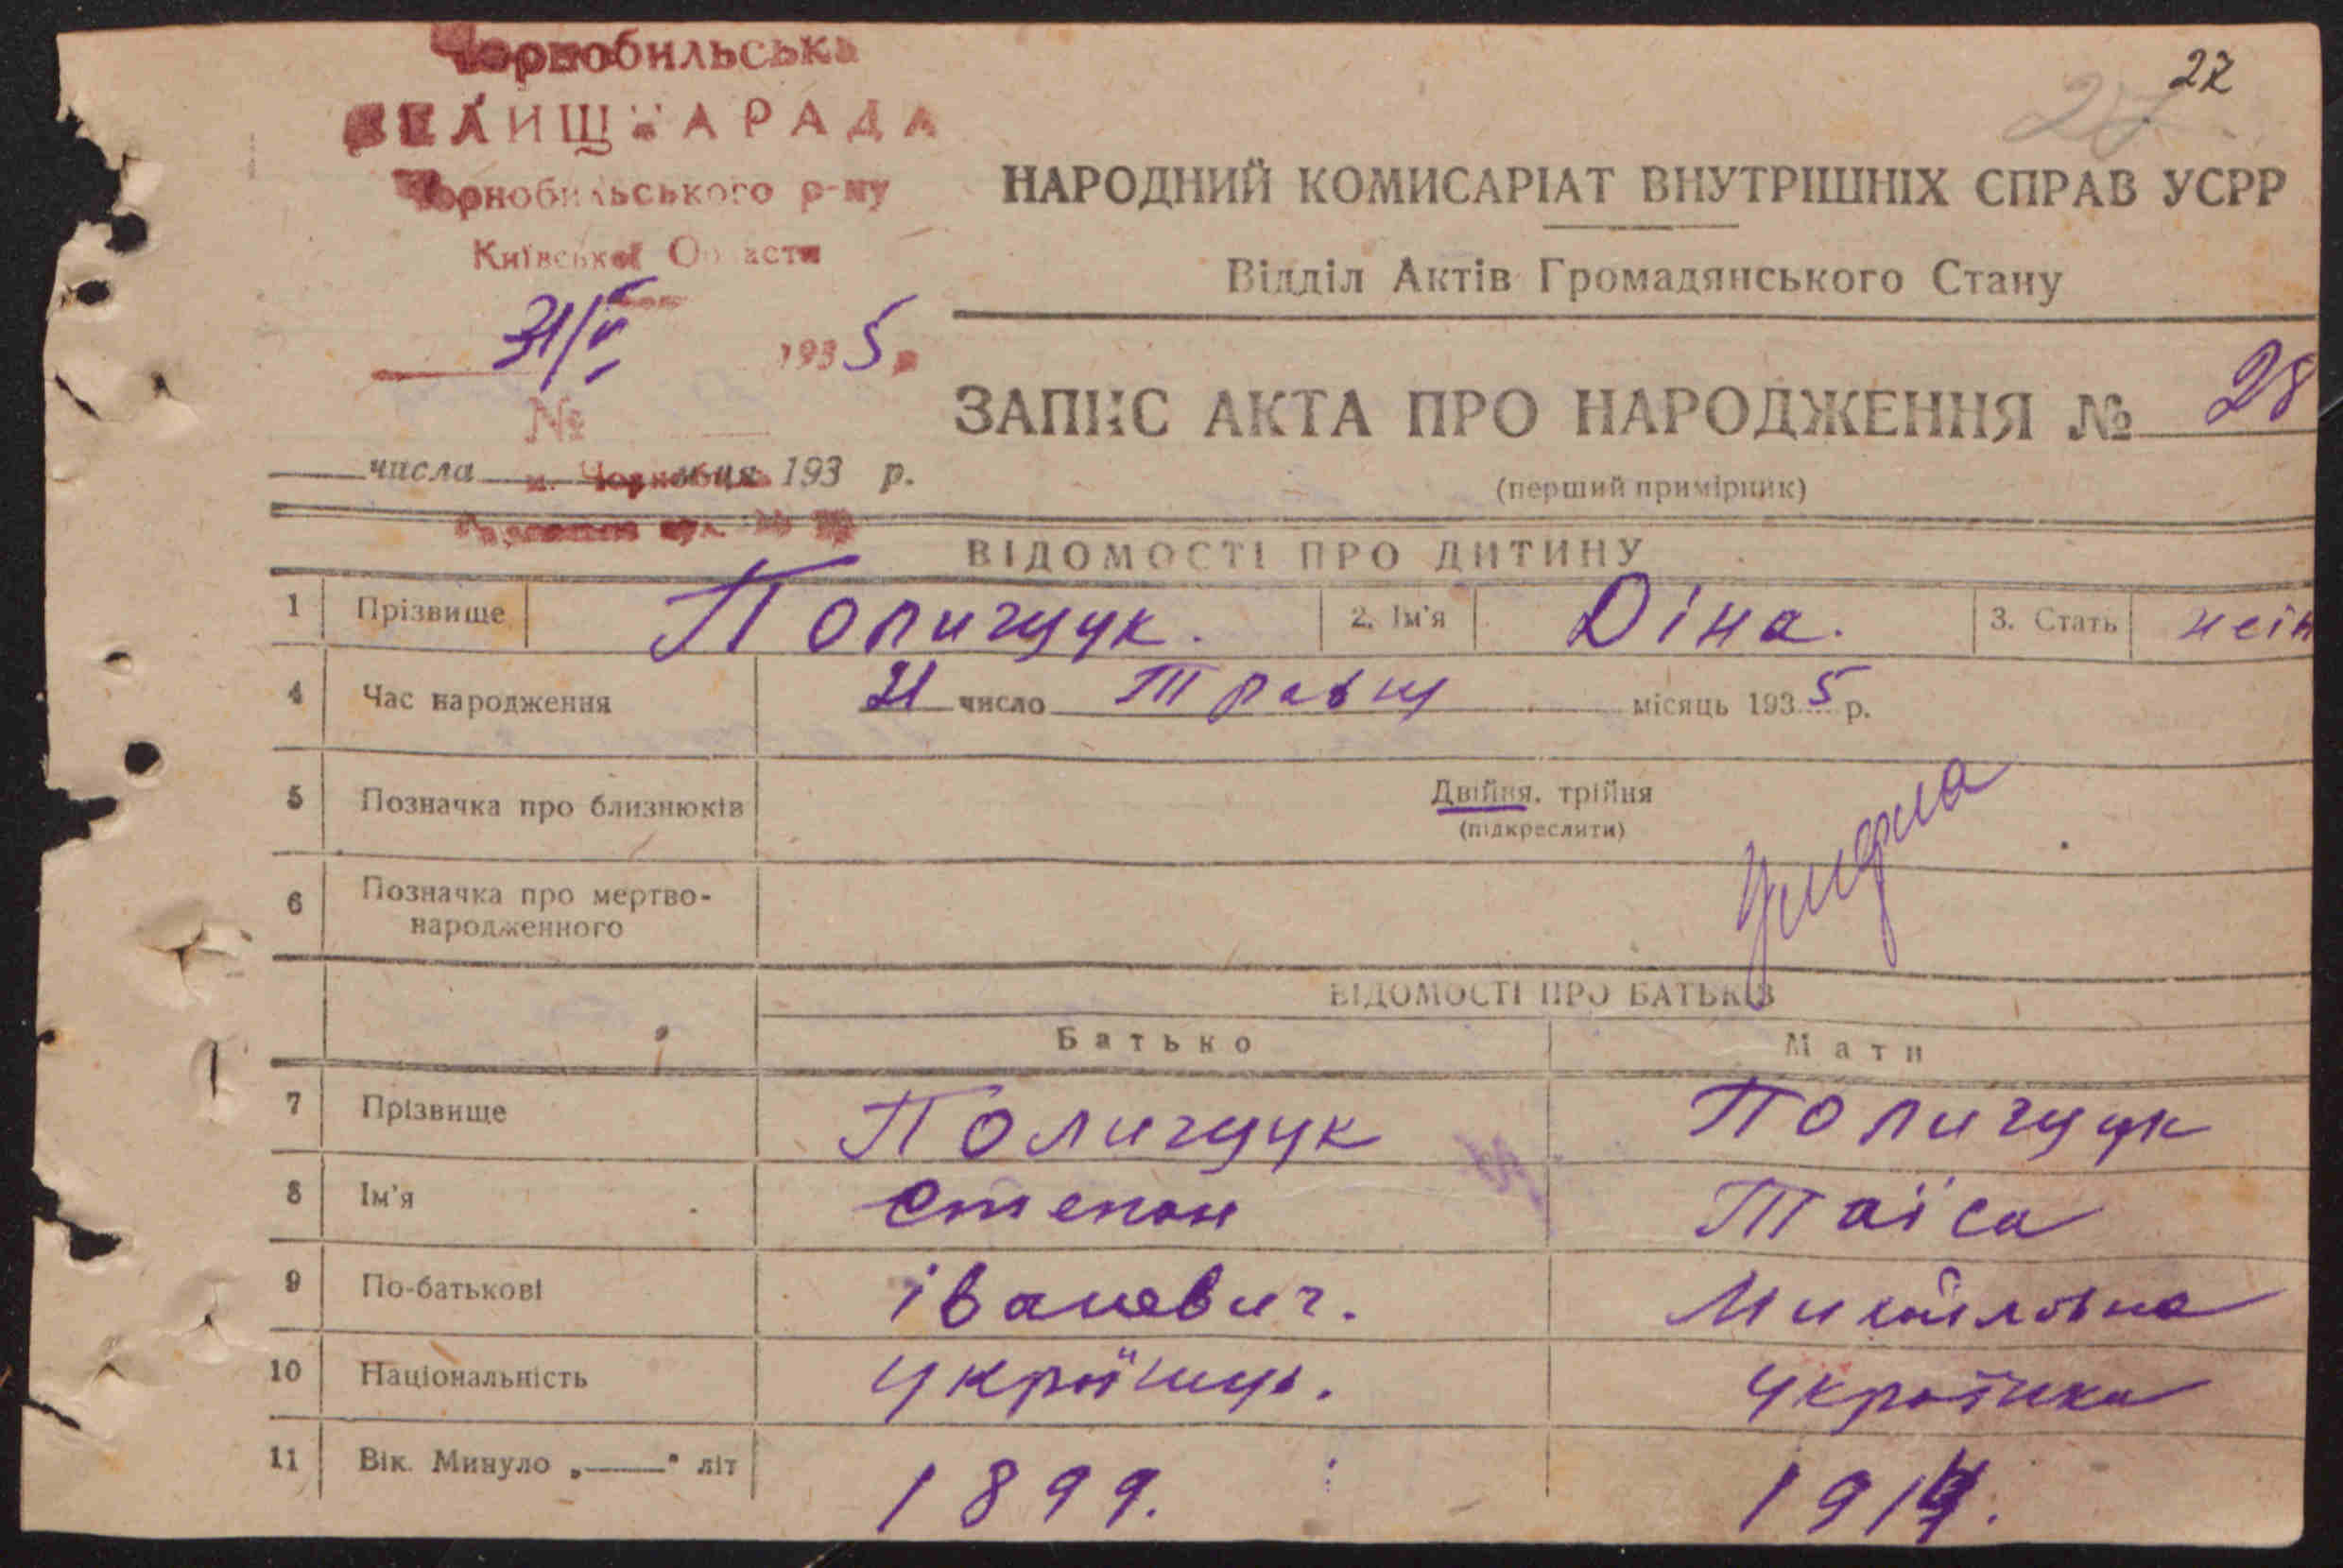 Чорнобильська
СЕЛИЩНА РАДА
Чорнобильського р-ну
Київської Области
31/V 1935 р.
№
числа м-ця 193 р.
м. Чорнобиль
вул. №
22
27
НАРОДНИЙ КОМИСАРІАТ ВНУТРІШНІХ СПРАВ УСРР
Відділ Актів Громадянського Стану
ЗАПИС АКТА ПРО НАРОДЖЕННЯ № 28
(перший примірник)
ВІДОМОСТІ ПРО ДИТИНУ
1 Прізвище Поличщук. 2. Ім'я Діна. 3. Стать жін
4 Час народження 21 число Травщ місяць 1935 р.
5 Позначка про близнюків Двійня, трійня
(підкреслити)
умерла
6 Позначка про мертво-
народженного
ВІДОМОСТІ ПРО БАТЬКІВ
Батько Мати
7 Прізвище Поличщук Поличщук
8 Ім'я Степан Таїса
9 По-батькові іванович. Михайловна
10 Національність українць. українка
11 Вік. Минуло „——" літ 1899. 1914.